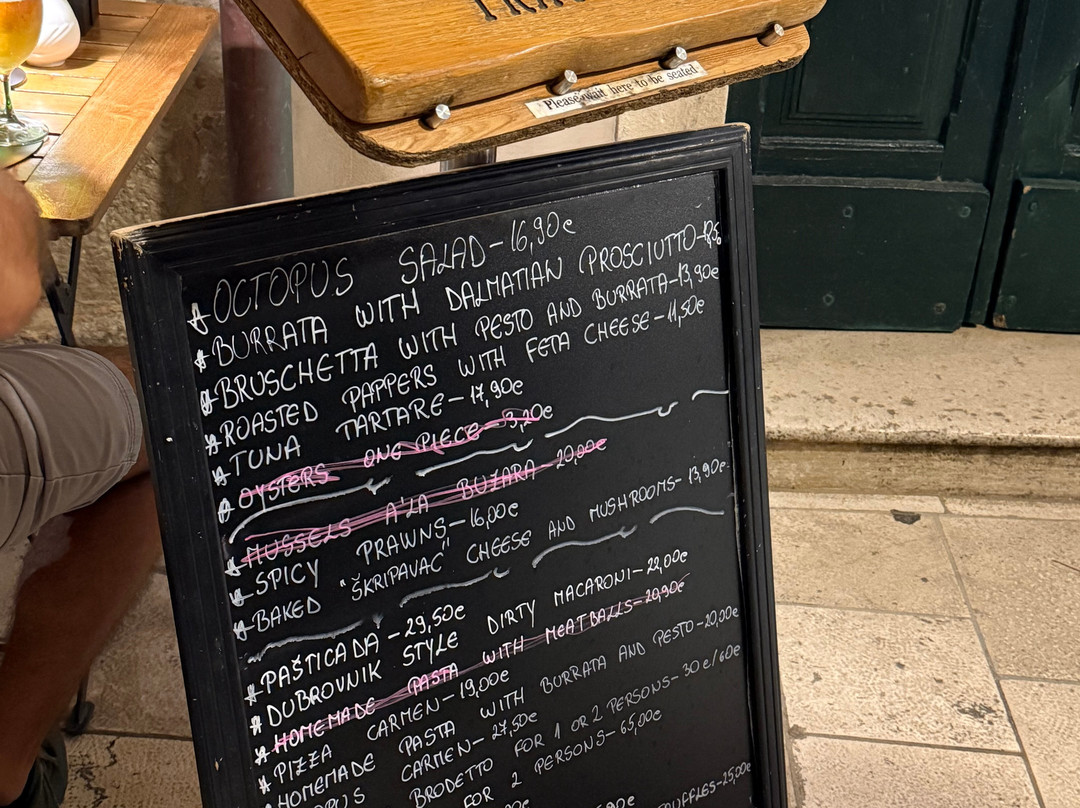 Please wait here to be seated
OCTOPUS SALAD - 16,90€
BURRATA WITH DALMATIAN PROSCIUTTO -
BRUSCHETTA WITH PESTO AND BURRATA - 13,90€
ROASTED PAPPERS WITH FETA CHEESE - 11,50€
TUNA TARTARE - 17,90€
OYSTERS ONE PIECE - 3,20€
MUSSELS A'LA BUZARA - 20,00€
SPICY PRAWNS - 16,00€
BAKED "ŠKRIPAVAC" CHEESE AND MUSHROOMS - 13,90€
PAŠTICADA - 29,50€
DUBROVNIK STYLE DIRTY MACARONI - 22,00€
HOMEMADE PASTA WITH MEATBALLS - 20,90€
PIZZA CARMEN - 19,00€
HOMEMADE PASTA WITH BURRATA AND PESTO - 20,00€
CARMEN - 27,50€
BRODETTO FOR 1 OR 2 PERSONS - 30€/60€
FOR 2 PERSONS - 65,00€